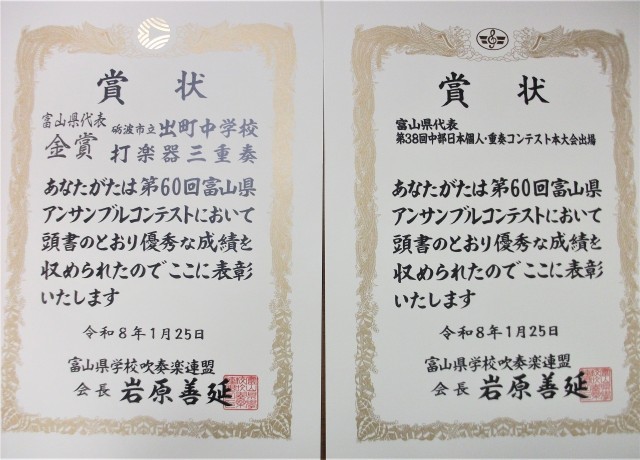 賞状
富山県代表
金賞
砺波市立出町中学校
打楽器三重奏
あなたがたは第60回富山県
アンサンブルコンテストにおいて
頭書のとおり優秀な成績を
収められたのでここに表彰
いたします
令和8年1月25日
富山県学校吹奏楽連盟
会長 岩原善延
賞状
富山県代表
第38回中部日本個人・重奏コンテスト本大会出場
あなたがたは第60回富山県
アンサンブルコンテストにおいて
頭書のとおり優秀な成績を
収められたのでここに表彰
いたします
令和8年1月25日
富山県学校吹奏楽連盟
会長 岩原善延